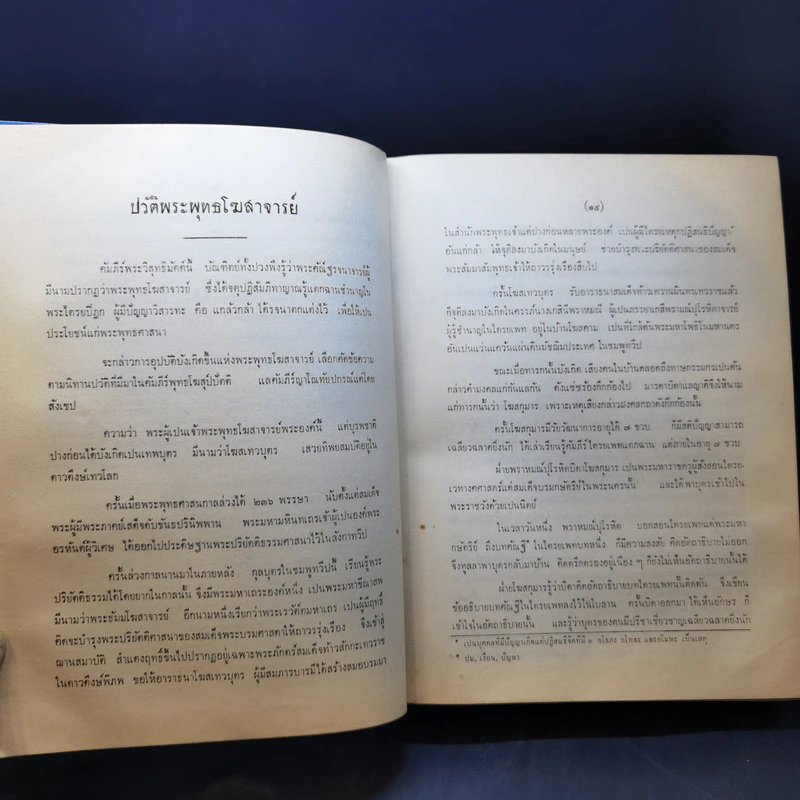 ปวัติพระพุทธโฆสาจารย์
คัมภีร์พระวิสุทธิมัคค์นี้ บัณฑิตย์ทั้งปวงพึงรู้ว่าพระคัณฐรจนาจารย์ผู้
มีนามปรากฏว่าพระพุทธโฆสาจารย์ ซึ่งได้จตุปฏิสัมภิทาญาณรู้แตกฉานชำนาญใน
พระไตรยปิฎก ผู้มีปัญญาวิสารทะ คือ แกล้วกล้า ได้รจนาตกแต่งไว้ เพื่อให้เปน
ประโยชน์แก่พระพุทธศาสนา
จะกล่าวการอุปบัติบังเกิดขึ้นแห่งพระพุทธโฆสาจารย์ เลือกคัดข้อความ
ตามนิทานปวัติที่มีมาในคัมภีร์พุทธโฆสุปปัตติ แลคัมภีร์ญาโณทัยปกรณ์แต่โดย
สังเขป
ความว่า พระผู้เปนเจ้าพระพุทธโฆสาจารย์พระองค์นี้ แต่บุรพชาติ
ปางก่อนได้บังเกิดเปนเทพบุตร มีนามว่าโฆสเทวบุตร เสวยทิพยสมบัติอยู่ใน
ดาวดึงษ์เทวโลก
ครั้นเมื่อพระพุทธศาสนกาลล่วงได้ ๒๓๖ พรรษา นับตั้งแต่สมเด็จ
พระผู้มีพระภาคย์เสด็จดับขันธปรินิพพาน พระมหามหินทเถรเจ้าผู้เปนองค์พระ
อรหันต์ผู้วิเศษ ได้ออกไปประดิษฐานพระปริยัติธรรมศาสนาไว้ในลังกาทวีป
ครั้นล่วงกาลนานมาในภายหลัง กุลบุตรในชมพูทวีปนี้ เรียนรู้พระ
ปริยัติธรรมได้โดยยากในกาลนั้น จึงมีพระมหาเถรองค์หนึ่ง เปนพระมหาขีณาสพ
มีนามว่าพระธัมมโฆสาจารย์ อีกนามหนึ่งเรียกว่าพระเรวัติตมหาเถร เปนผู้มีฤทธิ์
คิดจะบำรุงพระปริยัติศาสนาของสมเด็จพระบรมศาสดาให้ถาวรรุ่งเรือง จึงเข้าสู่
ฌานสมาบัติ สำแดงฤทธิ์ขึ้นไปปรากฏอยู่เฉพาะพระภักตร์สมเด็จท้าวสักกะเทวราช
ในดาวดึงษ์พิภพ ขอให้อาราธนาโฆสเทวบุตร ผู้มีสมภารบารมีได้สร้างสมอบรมมา
(๑๕)
ในสำนักพระพุทธเจ้าแต่ปางก่อนหลายพระองค์ เปนผู้มีไตรยเหตุกปฏิสนธิปัญญา
อันแก่กล้า ให้จุติลงมาบังเกิดในมนุษย์ ช่วยบำรุงพระปริยัติศาสนาของสมเด็จ
พระสัมมาสัมพุทธเจ้าให้ถาวรรุ่งเรืองสืบไป
ครั้นโฆสเทวบุตร รับอาราธนาสมเด็จท้าวเทวานมินทรเทวราชแล้ว
ก็จุติลงมาบังเกิดในครรภ์นางเกสินีพราหมณี ผู้เปนภรรยาเกสีพราหมณ์ปุโรหิตาจารย์
ผู้รู้ชำนาญในไตรยเพท อยู่ในบ้านโฆสคาม เปนที่ใกล้ต้นพระมหาโพธิ์ในมหานคร
อันเปนแว่นแคว้นแผ่นดินมัชฌิมประเทศ ในชมพูทวีป
ขณะเมื่อทารกนั้นบังเกิด เสียงคนในบ้านตลอดถึงทาษกรรมกรเปนต้น
กล่าวคำมงคลแก่กันแลกัน ดังแซ่ซร้องกึกก้องไป มารดาบิดาแลญาติจึงให้นาม
แก่ทารกนั้นว่า โฆสกุมาร เพราะเหตุเสียงกล่าวมงคลกถาดังกึกก้องนั้น
ครั้นโฆสกุมารมีวัยวัฒนาการอายุได้ ๗ ขวบ ก็มีสติปัญญาสามารถ
เฉลียวฉลาดยิ่งนัก ได้เล่าเรียนรู้คัมภีร์ไตรยเพทแตกฉาน แต่ภายในอายุ ๗ ขวบ
ฝ่ายพราหมณ์ปุโรหิตบิดาโฆสกุมาร เปนพระมหาราชครูผู้สั่งสอนไตรย-
เวทางคศาสตร์แด่สมเด็จบรมกษัตริย์ในพระนครนั้น แลได้พาบุตรเข้าไปใน
พระราชวังด้วยเปนนิตย์
ในเวลาวันหนึ่ง พราหมณ์ปุโรหิต บอกสอนไตรยเพทแด่พระมหา
กษัตริย์ ถึงบทคัณฐี ในไตรยเพทบทหนึ่ง ก็มีความสงสัย คิดอัตถาธิบายไม่ออก
จึงทูลลาพาบุตรกลับมาบ้าน คิดตรึกตรองอยู่เนือง ๆ ก็ยังไม่เห็นอัตถาธิบายนั้นได้
ฝ่ายโฆสกุมารรู้ว่าบิดาคิดอัตถาธิบายบทไตรยเพทนั้นติดตัน จึงเขียน
ข้ออธิบายบทคัณฐีในไตรยเพทลงไว้ในใบลาน ครั้นบิดาออกมา ได้เห็นอักษร ก็
เข้าใจในอัตถาธิบายนั้น และรู้ว่าบุตรของตนมีปรีชาเชี่ยวชาญเฉลียวฉลาดยิ่งนัก
๑ เปนบุคคลที่มีปัญญาเกิดแต่ปฏิสนธิจิตที่มี ๓ อโลภะ อโทสะ และอโมหะ เป็นเหตุ
๒ ปม, เงื่อน, ปัญหา